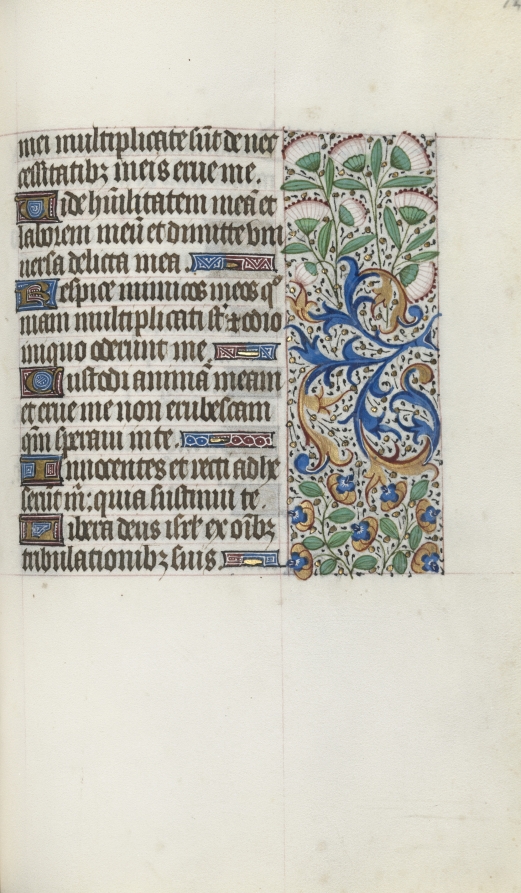 mei multiplicate sūt de nec
cessitatibꝫ meis erue me.
Vide hūilitatem meā et
laborem meū et dimitte vni
uersa delicta mea
Respice inimicos meos qm̄
niam multiplicati st̄ et odio
iniquo oderunt me
Custodi animā meam
et erue me non erubescam
qm̄ speraui in te
Innocentes et recti adhe
serūt m̄: quia sustinui te
Libera deus isrl̄ ex oībꝫ
tribulationibꝫ suis